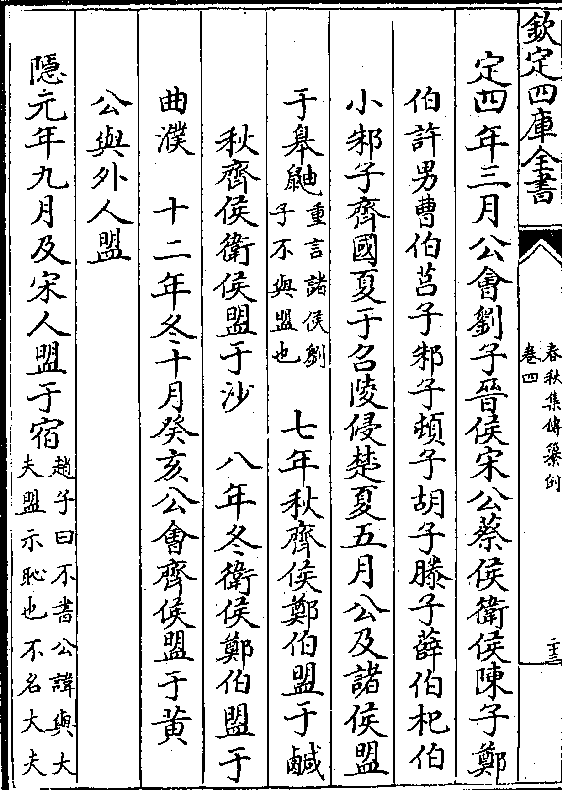 欽定四庫全書
春秋集傳纂例
卷四
二十三
定四年三月公會劉子晉侯宋公蔡侯衛侯陳子鄭
伯許男曹伯莒子邾子頓子胡子滕子薛伯杞伯
小邾子齊國夏于召陵侵楚夏五月公及諸侯盟
于皋鼬重言諸侯劉子不與盟也 七年秋齊侯鄭伯盟于鹹
秋齊侯衛侯盟于沙 八年冬衛侯鄭伯盟于
曲濮 十二年冬十月癸亥公會齊侯盟于黃
公與外人盟
隱元年九月及宋人盟于宿趙子曰不書公諱與大夫盟示恥也不名大夫